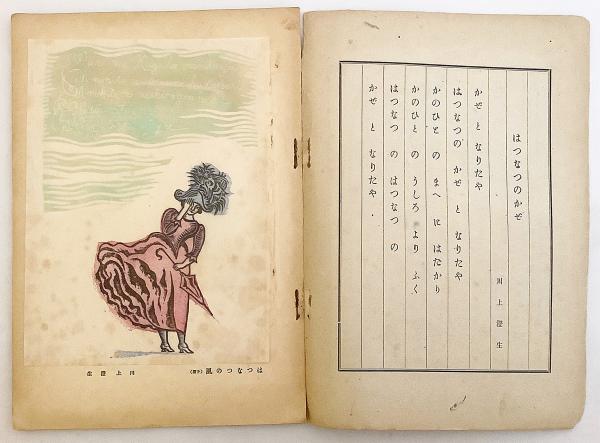 はつなつのかぜ
川上澄生
かぜ と なりたや
はつなつの かぜ と なりたや
かのひと の まへ に はたかり
かのひと の うしろ より ふく
はつなつ の はつなつ の
かぜ と なりたや .
はつなつの風
川上澄生